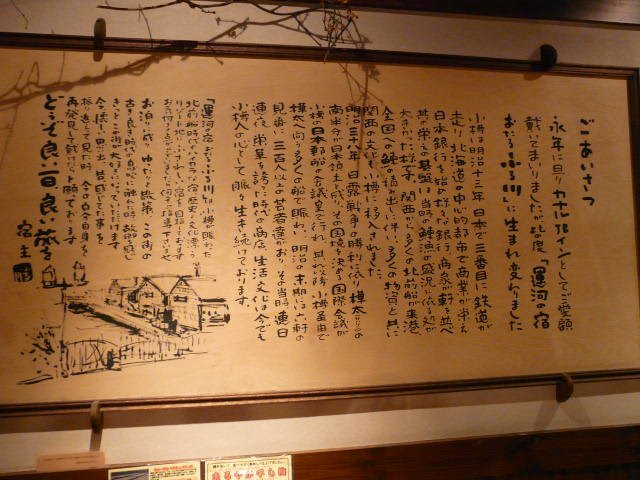 ごあいさつ
永年に亘りカナルインとしてご愛顧
戴いてまいりましたが此の度「運河の宿
おたるふる川」に生まれ変わりました
小樽は明治十三年日本で三番目に鉄道が
走り北海道の中心的都市で商業が栄え
日本銀行を始め様々な銀行、商家が軒を並べ
其の栄えの基盤は当時の鰊漁の盛況に依る処が
大きかった様です。関西から多くの北前船が来港、
全国への鰊の積出しに伴い多くの物資と共に
関西の文化も小樽に移入されました。
明治三十八年日露戦争の勝利に依り樺太の
南半分が日本領土と成り、その国境を決める国際会議が
小樽の日本郵船の会議室で行れ、其れ以降小樽経由で
樺太へ向う多くの船で賑わい、明治の末期には六軒の
見番に三百人以上の芸者達がおり、その当時連日
連夜、栄華を誇った時代の商店、生活文化は今でも
小樽人の心として脈々と生き続けております。
「運河の宿おたるふる川」は小樽が賑わった
北前船時代のレトロな宿、歴史と文化漂う
リゾート地にふさわしい宿を目指しております
お泊りの成り、ゆったりと散策、この街の
古き良き時代の息吹に触れた時、故郷を感じ
きっとこの街が大好きになっていただけます
今を懐しい思い出、昔感じてた事を
振り返って見た時、今の自分自身を
再発見して戴けたらと願っております。
どうぞ良い一日良い旅を
宿主